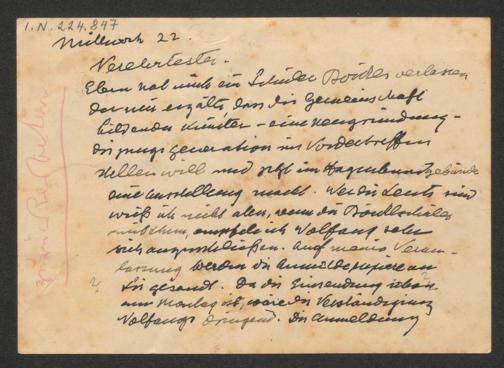 I.N. 224.847
Mittwoch 22.
Verehrtester.
Eben hat mich ein Schüler Böckls verlassen
der mir erzählt, dass die Gemeinschaft
bildender Künstler – eine Neugründung –
die junge Generation ins Vordertreffen
stellen will und jetzt im Hagenbundgebäude
eine Ausstellung macht. Wer die Leute sind
weiß ich nicht aber, wenn die Böcklschüler
mittun, empfehle ich Wolfgang sehr
sich anzuschließen. Auf meine Veran-
lassung werden die Anmeldepapiere an
Sie gesandt. Da die Einsendung schon
am Montag ist, wäre die Verständigung
Wolfgangs dringend. Die Anmeldung